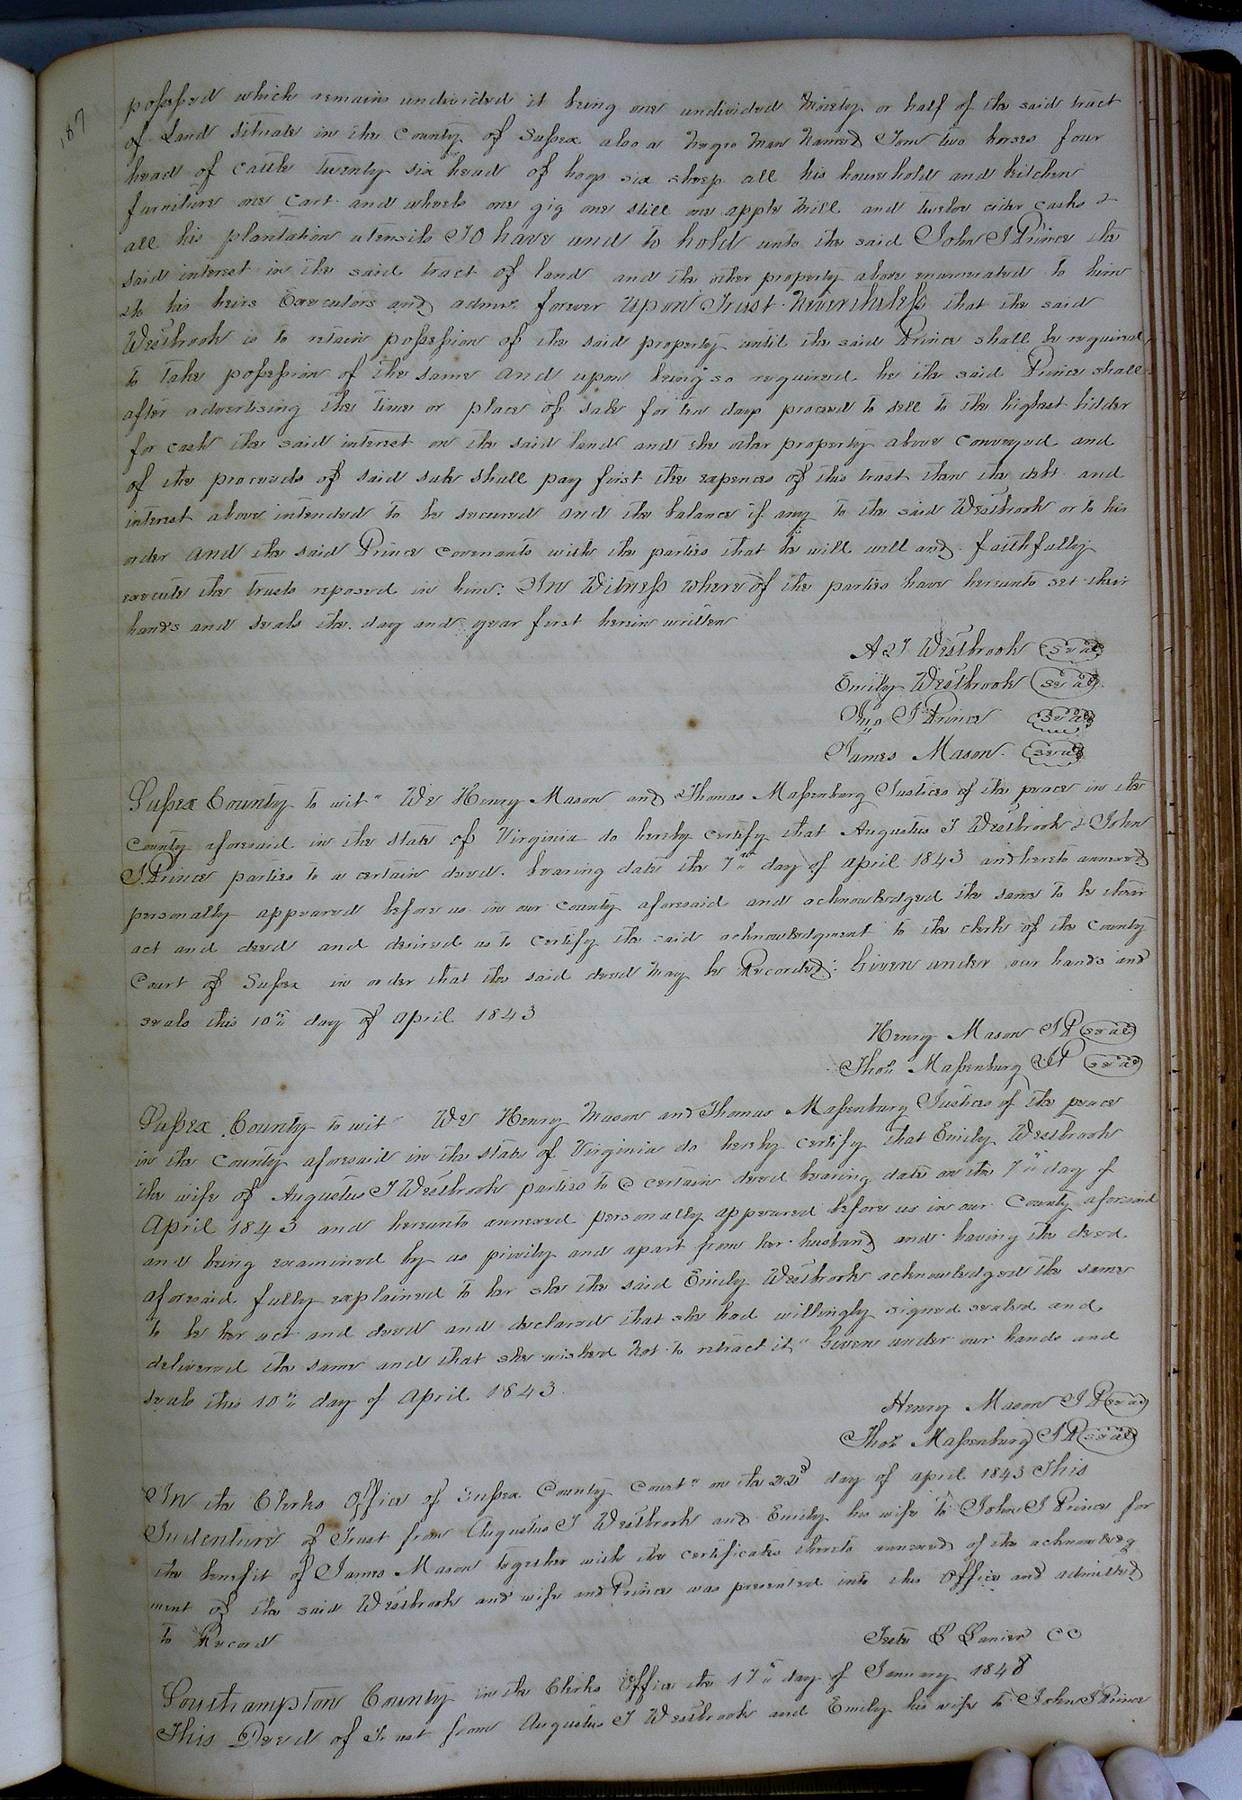 187
possessed which remains undivided it being one undivided Moiety or half of the said tract
of Land situate in the County of Sussex also a Negro Man Named Tom two horses four
head of cattle twenty six head of hogs six sheep all his household and kitchen
furniture one Cart and wheels one gig one still one apple Mill and twelve cider casks &
all his plantation utensils TO have and to hold unto the said John J Prince the
said interest in the said tract of land and the other property above enumerated to him
to his heirs Executors and admrs forever Upon Trust Nevertheless that the said
Westbrook is to retain possession of the said property until the said Prince shall be required
to take possession of the same and upon being so required he the said Prince shall
after advertising the time or place of sale for ten days proceed to sell to the highest bidder
for cash the said interest on the said land and the other property above conveyed and
of the proceeds of said sale shall pay first the expences of this trust then the debt and
interest above intended to be secured and the balance if any to the said Westbrook or to his
order and the said Prince covenants with the parties that he will well and faithfully
execute the trusts reposed in him. In Witness where of the parties have hereunto set their
hands and seals the day and year first herein written
A J Westbrook seal
Emily Westbrook seal
Jno J Prince seal
James Mason seal
Sussex County to wit" We Henry Mason and Thomas Massenburg Justices of the peace in the
County aforesaid in the state of Virginia do hereby certify that Augustus J Westbrook & John
J Prince parties to a certain deed bearing date the 7th day of april 1843 and hereto annexed
personally appeared before us in our county aforesaid and acknowledged the same to be their
act and deed and desired us to certify the said acknowledgment to the clerk of the County
Court of Sussex in order that the said deed May be Recorded: Given under our hands and
seals this 10th day of april 1843
Henry Mason JP seal
Thos Massenburg JP seal
Sussex County to wit We Henry Mason and Thomas Massenburg Justices of the peace
in the County aforesaid in the state of Virginia do hereby certify that Emily Westbrook
the wife of Augustus J Westbrook parties to a certain deed bearing date on the 7th day of
April 1843 and hereunto annexed personally appeared before us in our County aforesaid
and being examined by us privily and apart from her husband and having the deed
aforesaid fully explained to her she the said Emily Westbrook acknowledged the same
to be her act and deed and declared that she had willingly signed sealed and
delivered the same and that she wished Not to retract it" Given under our hands and
seals this 10th day of April 1843.
Henry Mason JP seal
Thos Massenburg JP seal
In the Clerks Office of Sussex County Court" on the 22d day of april 1843 This
Indenture of Trust from Augustus J Westbrook and Emily his wife to John J Prince for
the benefit of James Mason together with the certificates thereto annexed of the acknowledg
ment of the said Westbrook and wife and Prince was presented into the Office and admitted
to Record
Teste Lanier CC
Southampton County in the Clerks Office the 17th day of January 1848
This Deed of Trust from Augustus J Westbrook and Emily his wife to John J Prince